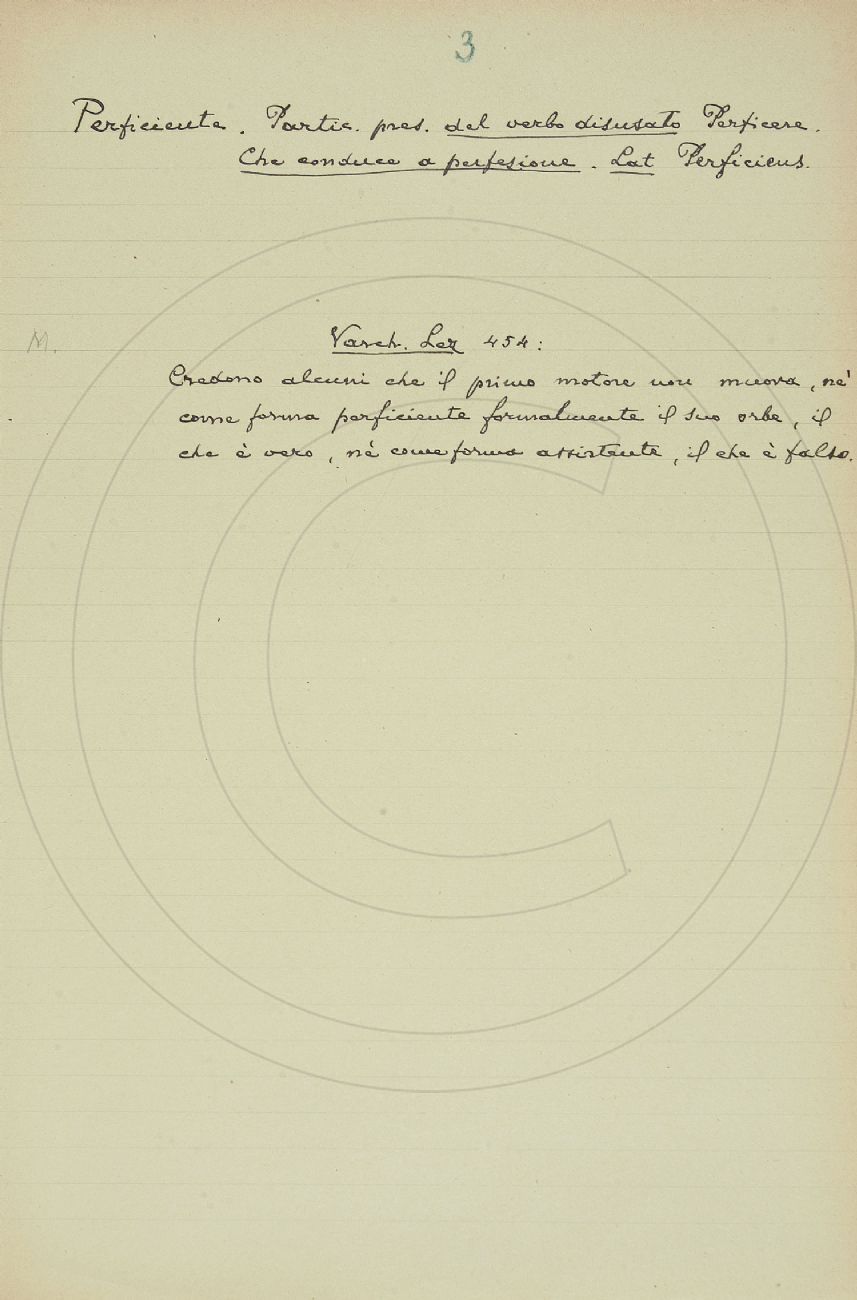 3
Perficiente. Partic. pres. del verbo disusato Perficere.
Che conduce a perfezione. Lat Perficiens.
M.
Varch. Lez 454:
Credono alcuni che il primo motore non muova, nè
come forma perficiente formalmente il suo orbe, il
che è vero, nè come forma assistente, il che è falso.